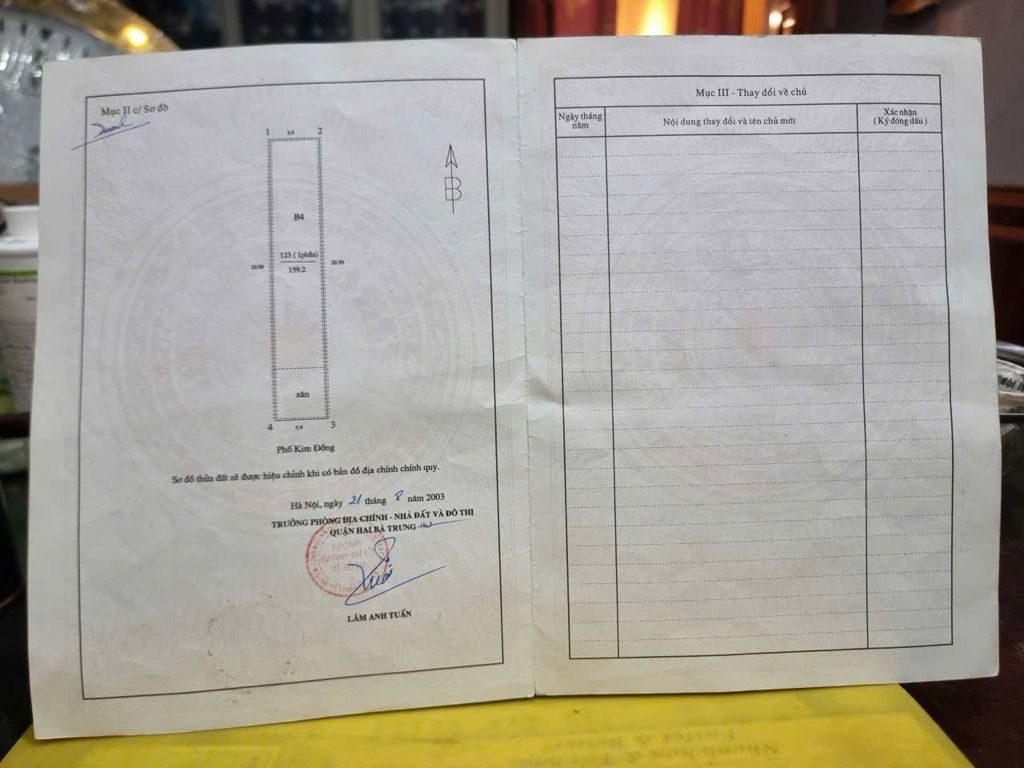 Mục II c/ Sơ đồ
1 5.9 2
B
B4
123 ( 1phần)
26.99 159.2 26.99
sân
4 5.9 3
Phố Kim Đồng
Sơ đồ thửa đất sẽ được hiệu chỉnh khi có bản đồ địa chính chính quy.
Hà Nội, ngày 21 tháng 8 năm 2003
TRƯỞNG PHÒNG ĐỊA CHÍNH - NHÀ ĐẤT VÀ ĐÔ THỊ
QUẬN HAI BÀ TRƯNG
LÂM ANH TUẤN
Mục III - Thay đổi về chủ
Ngày tháng năm
Nội dung thay đổi và tên chủ mới
Xác nhận
( Ký đóng dấu )